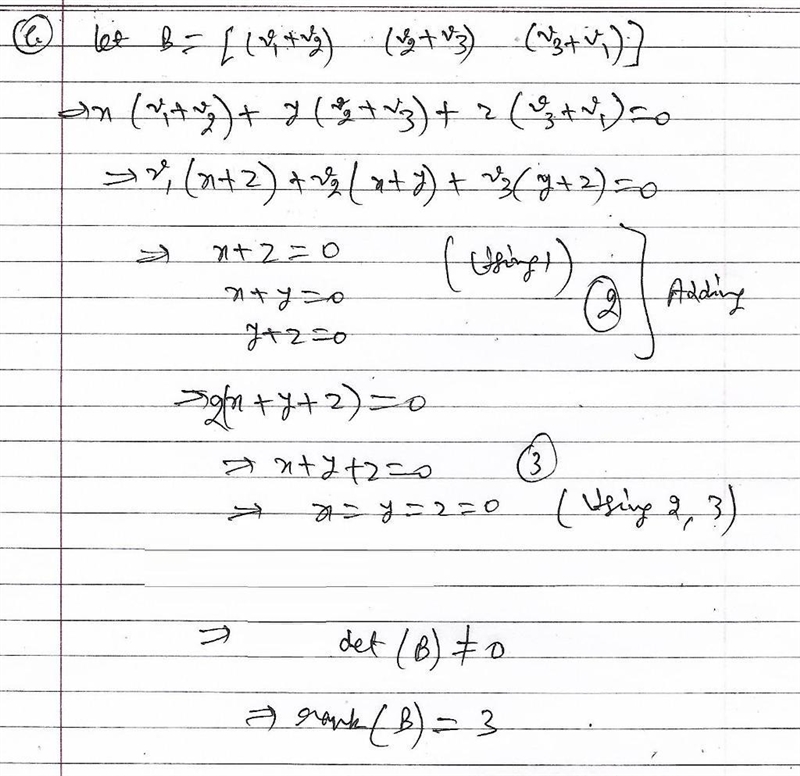 (c) let B = [(v₁+v₂) (v₂+v₃) (v₃+v₁)]
⇒ x (v₁+v₂) + y (v₂+v₃) + z (v₃+v₁) = 0
⇒ v₁ (x+z) + v₂ (x+y) + v₃ (y+z) = 0
⇒ x+z = 0 (Using 1)
x+y = 0 ② ] Adding
y+z = 0
⇒ 2(x+y+z) = 0
⇒ x+y+z = 0 ③
⇒ x = y = z = 0 (Using 2, 3)
⇒ det (B) ≠ 0
⇒ rank (B) = 3